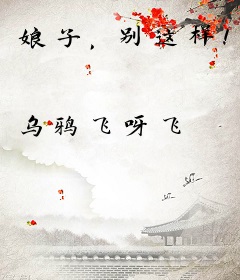 娘子，别这样！
乌鸦飞呀飞